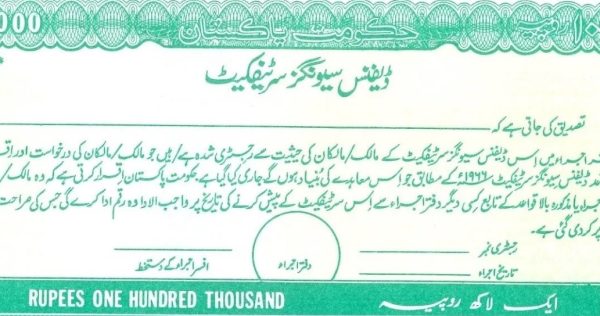 000 حکومت پاکستان ۱۰ روپیہ
ڈیفنس سیونگز سرٹیفکیٹ
تصدیق کی جاتی ہے کہ
اجراء میں اِس ڈیفنس سیونگز سرٹیفکیٹ کے مالک/مالکان کی حیثیت سے رجسٹری شدہ ہے/ہیں جو مالک/مالکان کی درخواست اور
ڈیفنس سیونگز سرٹیفکیٹ ۱۹۶۶ء کے مطابق جو اِس معاہدے کی بُنیاد ہوں گے جاری کیا گیا ہے۔ حکومت پاکستان اقرار کرتی ہے کہ وہ مالک/
اجراء یا مذکورہ بالا قواعد کے تابع کسی دیگر دفتر اجراء سے اِس سرٹیفکیٹ کے پیش کرنے کی تاریخ پر واجب الادا وہ رقم ادا کرے گی جس کی صراحت
پر کر دی گئی ہے۔
رجسٹری نمبر
تاریخ اجراء دفتر اجراء افسر اجراء کے دستخط
RUPEES ONE HUNDRED THOUSAND ایک لاکھ روپیہ